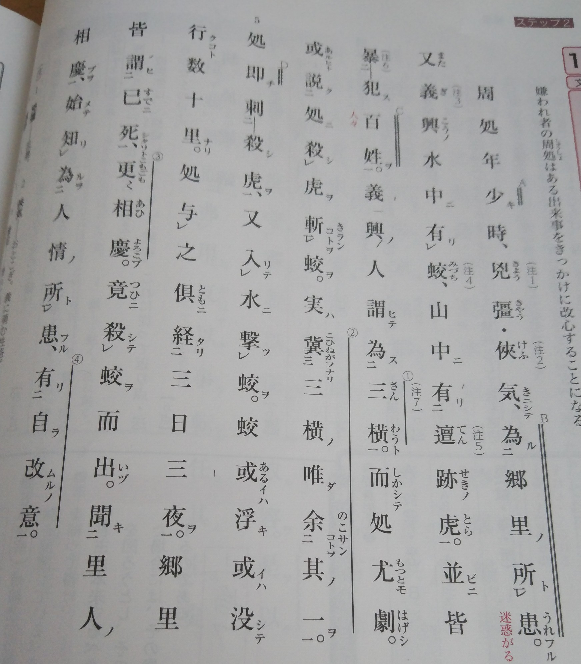 ステップ2
1
嫌われ者の周処はある出来事をきっかけに改心することになる
周処年少時、兇彊・俠気、為郷里所患。
迷惑がる
又義興水中有蛟、山中有邅跡虎。並皆
暴犯百姓。義興人謂為三横。而処尤劇。
或説処殺虎斬蛟。実冀三横唯余其一。
処即刺殺虎、又入水撃蛟。蛟或浮或没
行数十里。処与之俱経三日三夜。郷里
皆謂已死、更相慶。竟殺蛟而出。聞里人
相慶、始知為人情所患、有自改意。